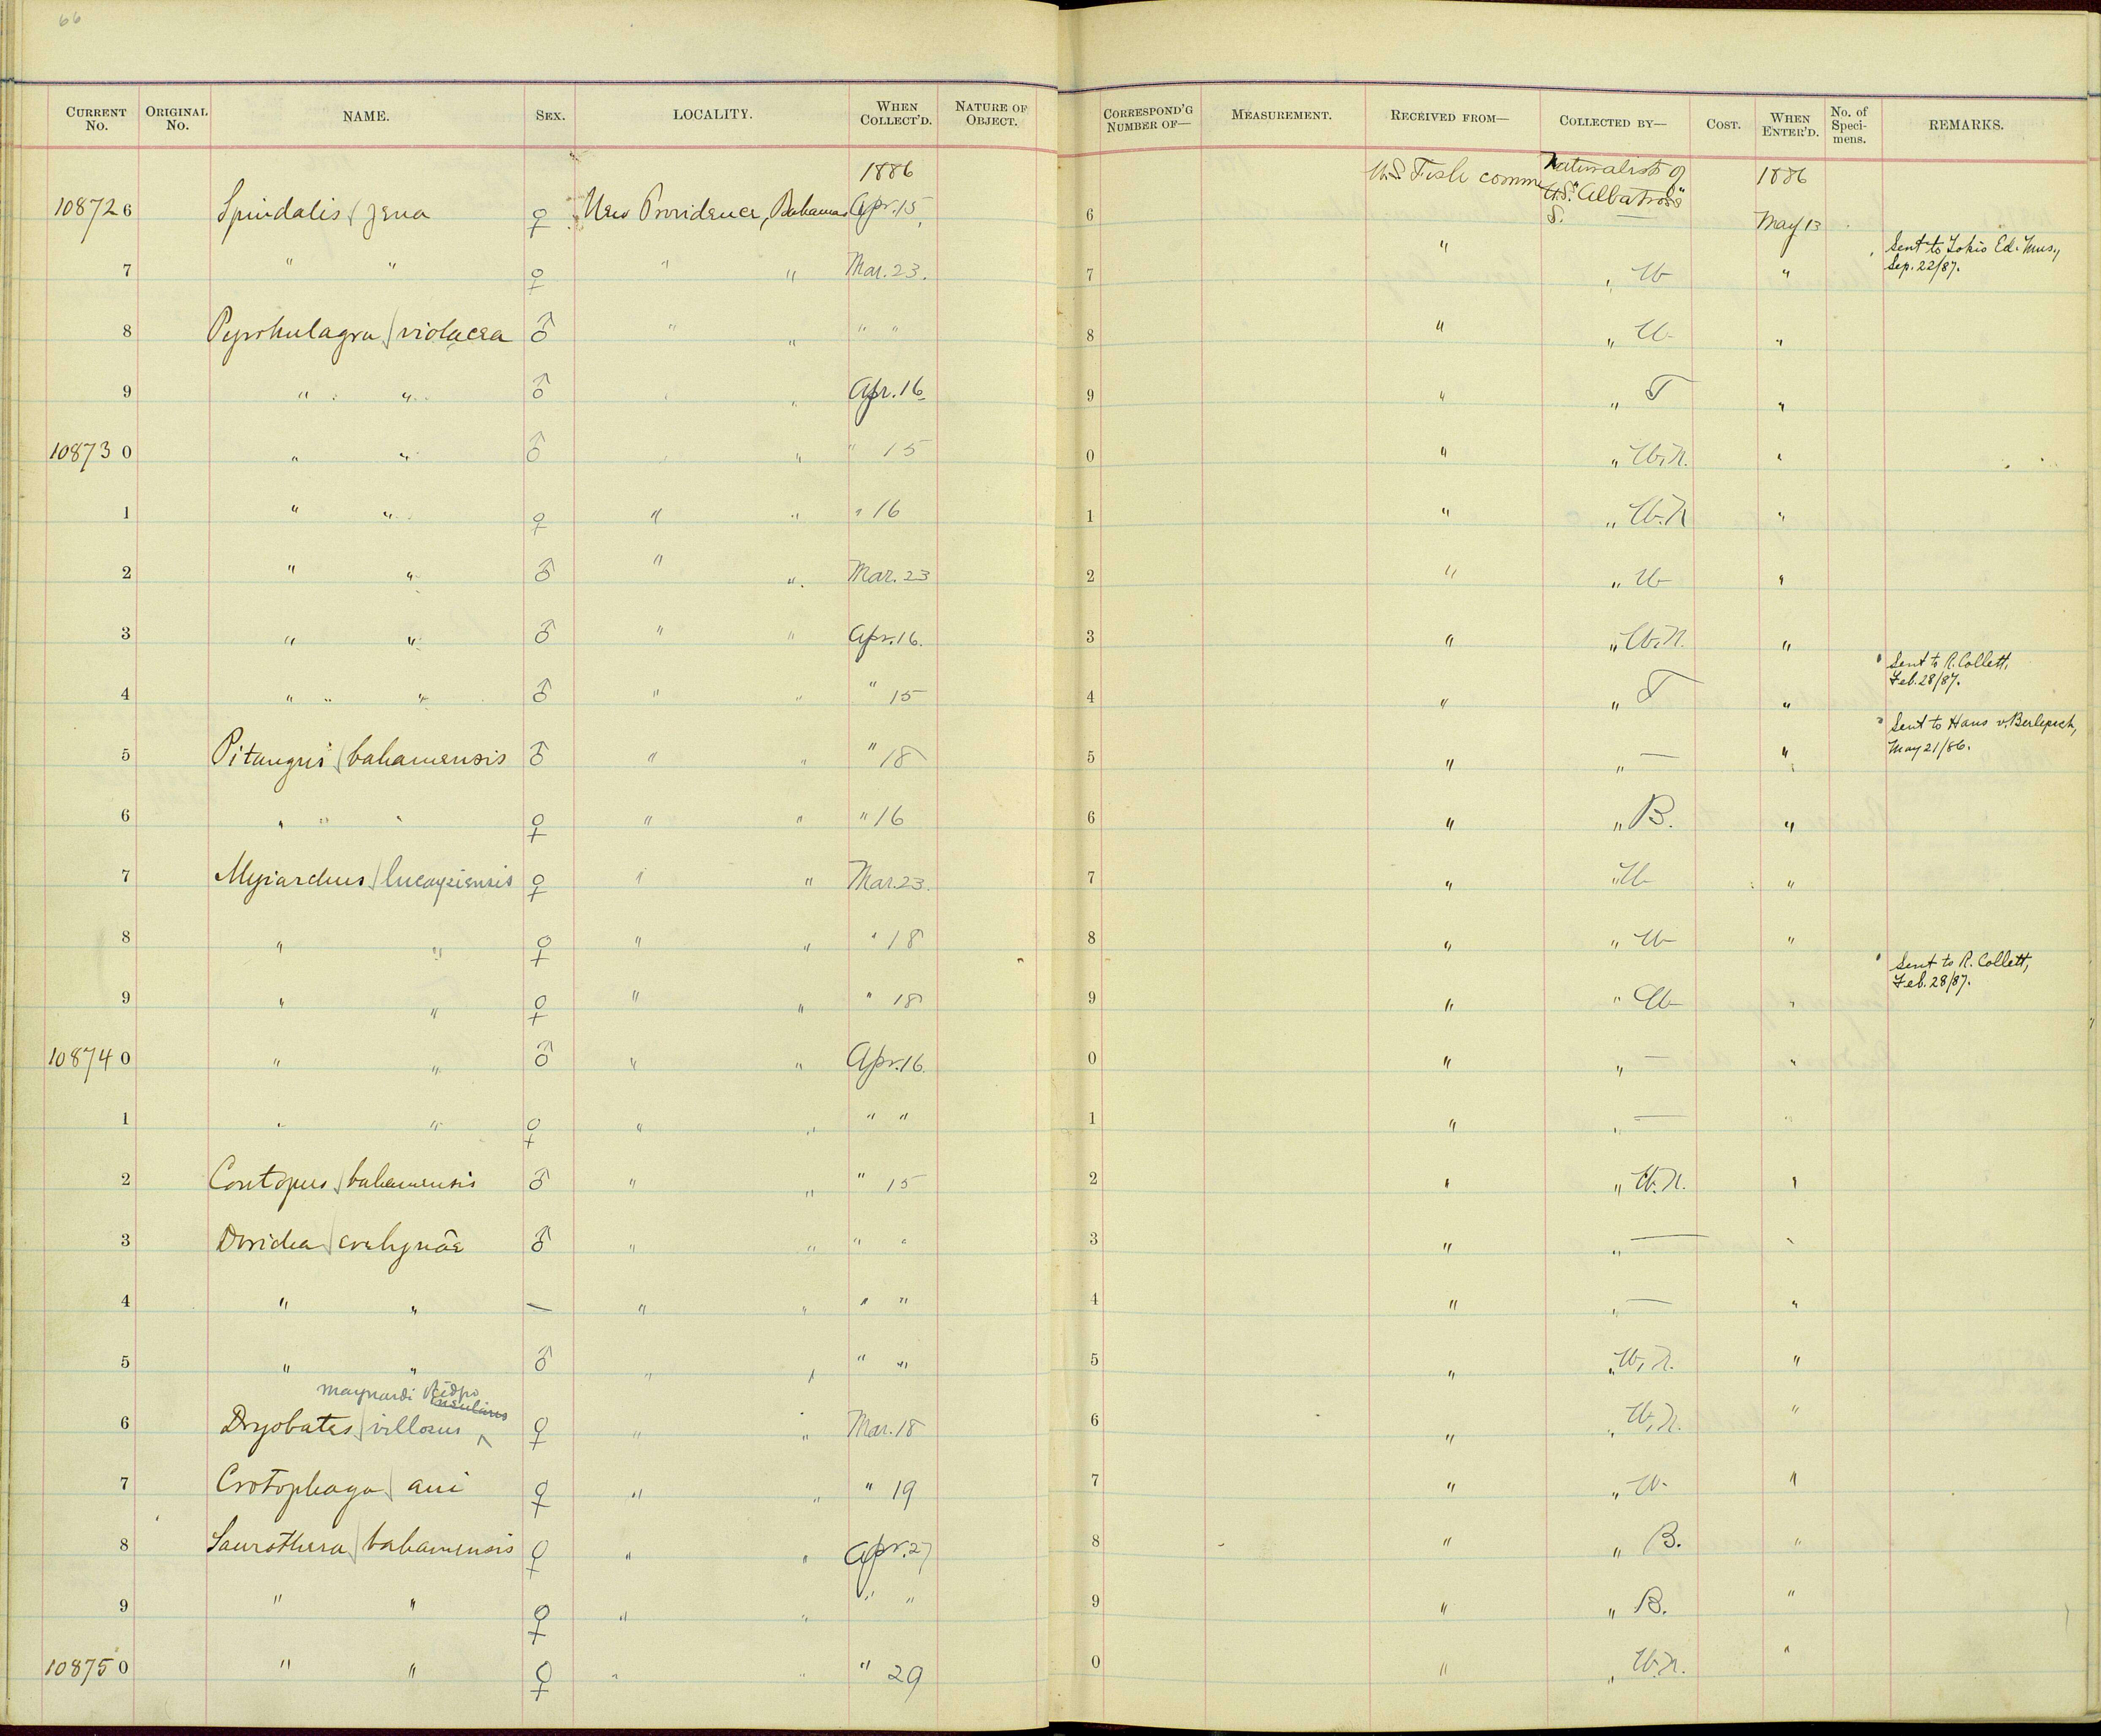 66
CURRENT No. ORIGINAL No. NAME. SEX. LOCALITY. WHEN COLLECT'D. NATURE OF OBJECT. CORRESPOND'G NUMBER OF— MEASUREMENT. RECEIVED FROM— COLLECTED BY— COST. WHEN ENTER'D. No. of Speci-mens. REMARKS.
1886 U.S. Fish comm Naturalists of 1886
108726 Spindalis zena ♀ New Providence, Bahamas Apr. 15, 6 U.S.S. "Albatross" — May 13
7 " " ♀ " " Mar. 23. 7 " " W " Sent to Tokio Ed. Mus., Sep. 22/87.
8 Pyrrhulagra violacea ♂ " " " " 8 " " W "
9 " " ♂ " " Apr. 16 9 " " T "
108730 " " ♂ " " " 15 0 " " W.N. "
1 " " ♀ " " " 16 1 " " W.N "
2 " " ♂ " " Mar. 23 2 " " W "
3 " " ♂ " " Apr. 16. 3 " " W.N. "
4 " " ♂ " " " 15 4 " " T " Sent to R. Collett, Feb. 28/87.
5 Pitangus bahamensis ♂ " " " 18 5 " " — " Sent to Hans v. Berlepsch, May 21/86.
6 " " ♀ " " " 16 6 " " B. "
7 Myiarchus lucaysiensis ♀ " " Mar. 23. 7 " " W "
8 " " ♀ " " " 18 8 " " W "
9 " " ♀ " " " 18 9 " " W " Sent to R. Collett, Feb. 28/87.
108740 " " ♂ " " Apr. 16. 0 " " — "
1 " " ♀ " " " " 1 " " — "
2 Contopus bahamensis ♂ " " " 15 2 " " W.N. "
3 Doricha evelynæ ♂ " " " " 3 " " — "
4 " " — " " " " 4 " " — "
5 " " ♂ " " " " 5 " " W.N. "
maynardi Ridgw insularis
6 Dryobates villosus ^ ♀ " " Mar. 18 6 " " W.N. "
7 Crotophaga ani ♀ " " " 19 7 " " W. "
8 Saurothera bahamensis ♀ " " Apr. 27 8 " " B. "
9 " " ♀ " " " " 9 " " B. "
108750 " " ♀ " " " 29 0 " " W.N. "